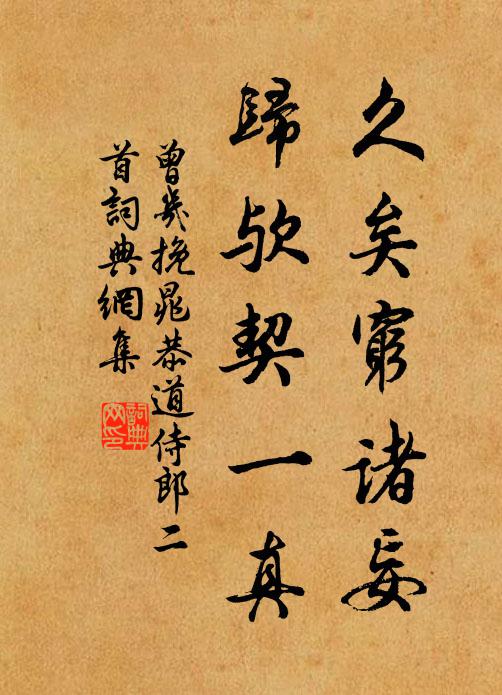 久矣窮諸妄
歸欤契一真
曾幾挽晁恭道侍郎二
首詞典網集
詞典
网印